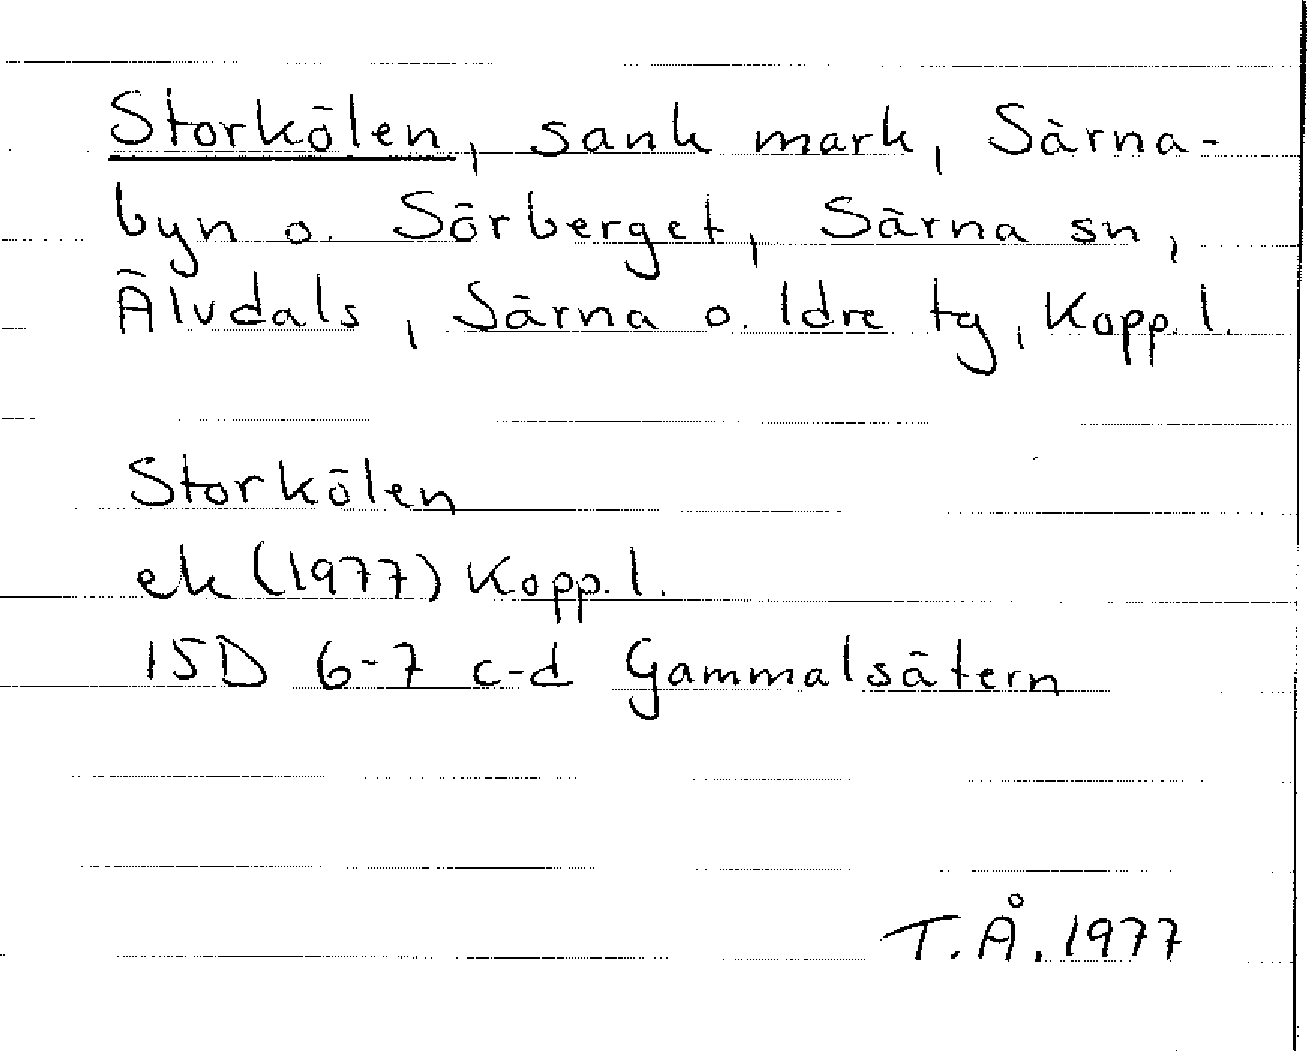 Storkölen, sank mark, Särna-
byn o. Sörberget, Särna sn,
Älvdals, Särna o. Idre tg, Kopp. l.
Storkölen
ek (1977) Kopp. l.
15D 6-7 c-d Gammalsätern
T.Å. 1977